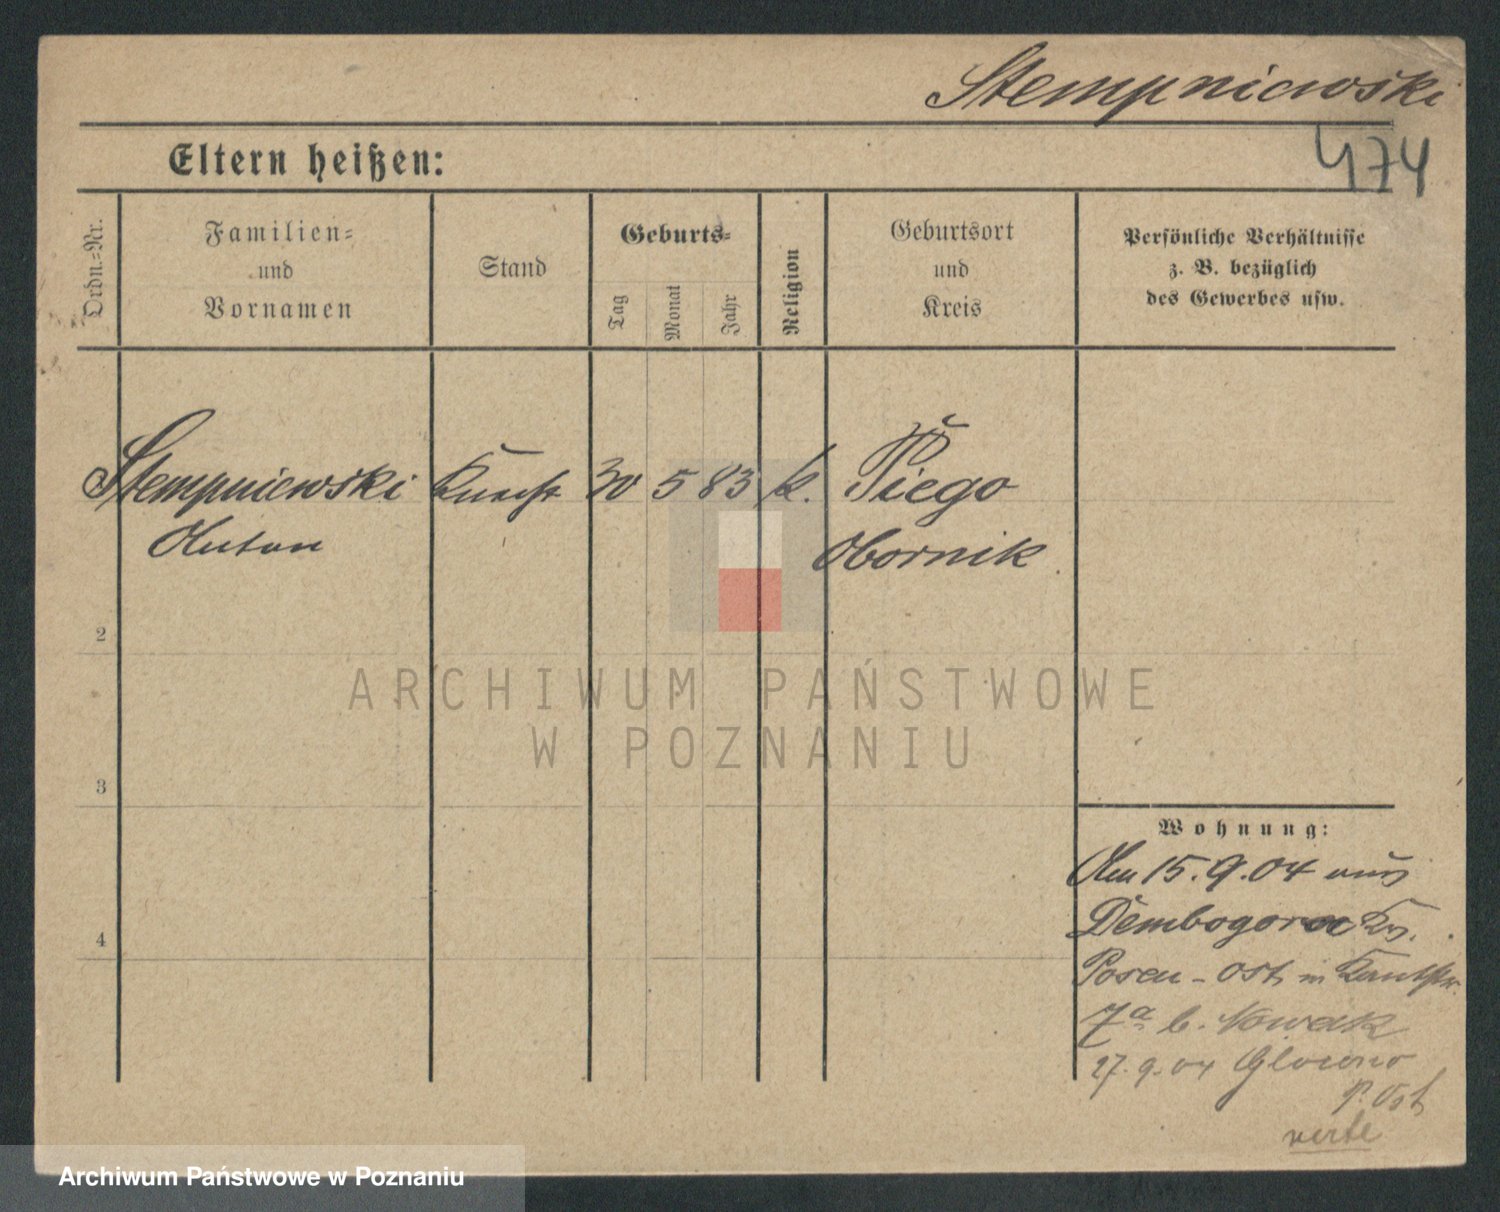 Stempniewski
474
Eltern heißen:
Ordn.-Nr.
Familien-
und
Vornamen
Stand
Geburts-
Tag
Monat
Jahr
Religion
Geburtsort
und
Kreis
Persönliche Verhältnisse
z. B. bezüglich
des Gewerbes usw.
Stempniewski Knecht 30 5 83 k. Piego
Anton Obornik
2
3
4
Wohnung:
Am 15.9.04 aus
Dembogora Kr.
Posen-Ost in
7a b. Nowak
27.9.04 Glowno
P. Ost
verte
ARCHIWUM PAŃSTWOWE
W POZNANIU
Archiwum Państwowe w Poznaniu